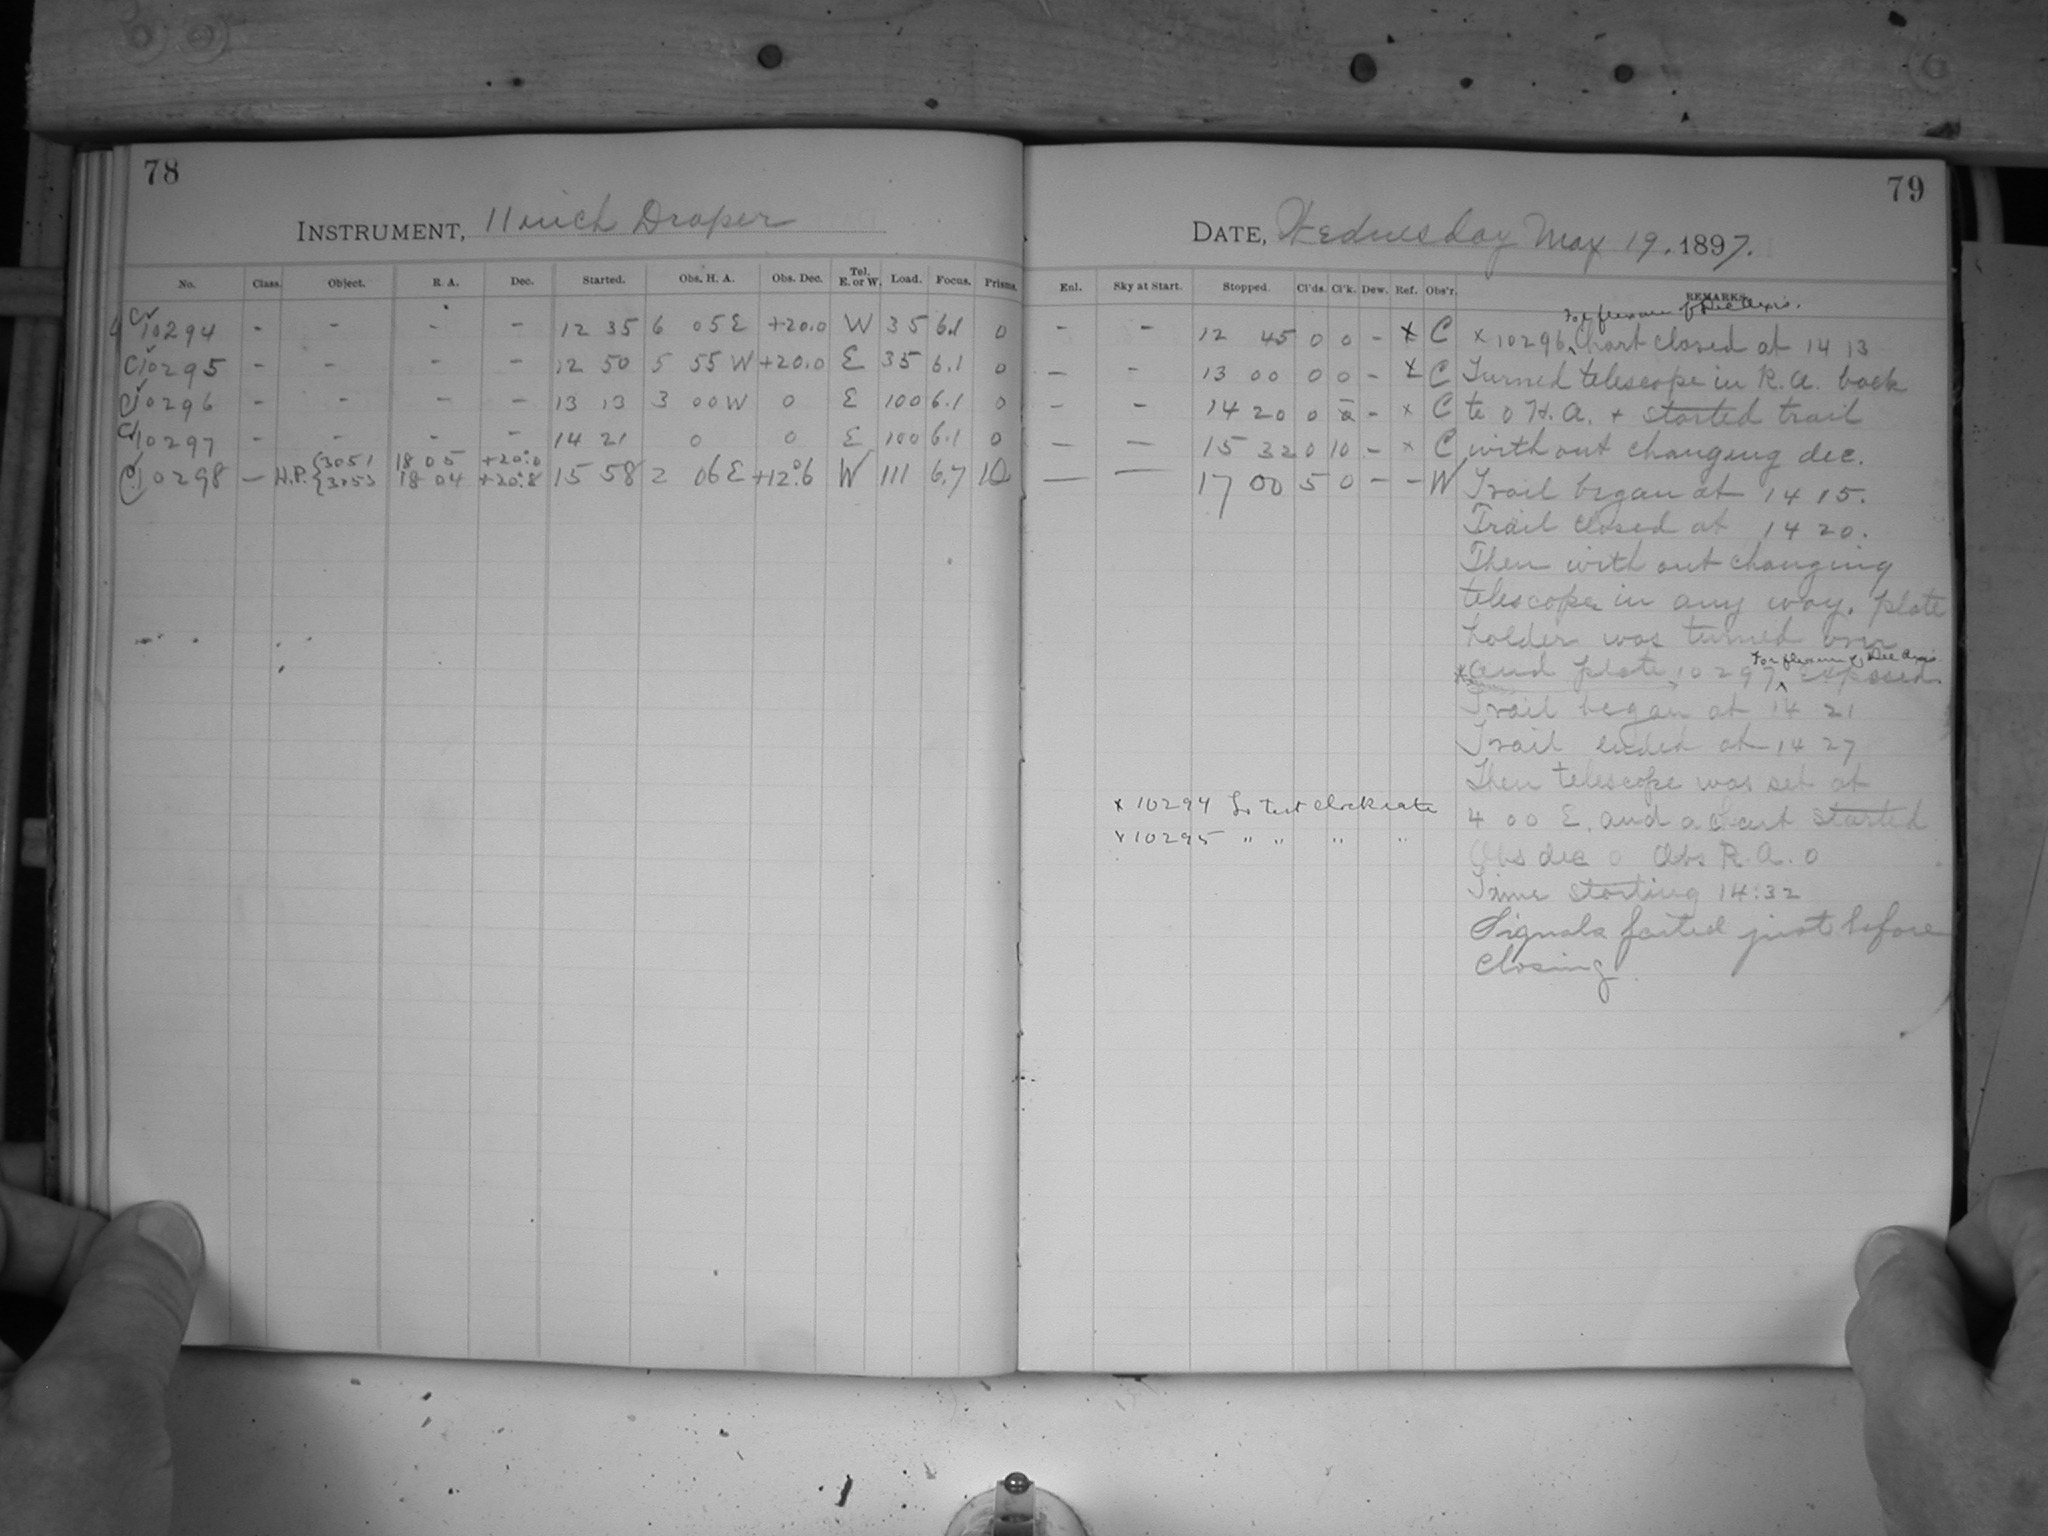 78
INSTRUMENT, 11 inch Draper
No. Class. Object. R. A. Dec. Started. Obs. H. A. Obs. Dec. Tel. E. or W. Load. Focus. Prisms.
C 10294 - - - - 12 35 6 05 E +20.0 W 35 6.1 0
C 10295 - - - - 12 50 5 55 W +20.0 E 35 6.1 0
C 10296 - - - - 13 13 3 00 W 0 E 100 6.1 0
C 10297 - - - - 14 21 0 0 E 100 6.1 0
C 10298 - H.P. { 3051 18 05 +20°.0 15 58 2 06 E +12°.6 W 111 6.7 10
{ 3053 18 04 +20°.8
79
DATE, Wednesday May 19. 1897.
Enl. Sky at Start. Stopped. Cl'ds. Cl'k. Dew. Ref. Obs'r. REMARKS.
- - 12 45 0 0 - x C
- - 13 00 0 0 - x C
- - 14 20 0 - x C
- - 15 32 0 10 - x C
- - 17 00 5 0 - - W
For flexure of Dec Axis.
x 10296 ^ Chart closed at 14 13
Turned telescope in R.A. back
to 0 H.A. + started trail
without changing dec.
Trail began at 14 15.
Trail closed at 14 20.
Then with out changing
telescope in any way. plate
holder was turned over
For flexure of Dec Axis
x and plate 10297 ^ exposed.
Trail began at 14 21
Trail ended at 14 27
Then telescope was set at
4 00 E. and a Chart started
Obs dec 0 Obs R.A. 0
Time starting 14:32
Signals failed just before
closing.
x 10294 To test clock rate
x 10295 " " " "